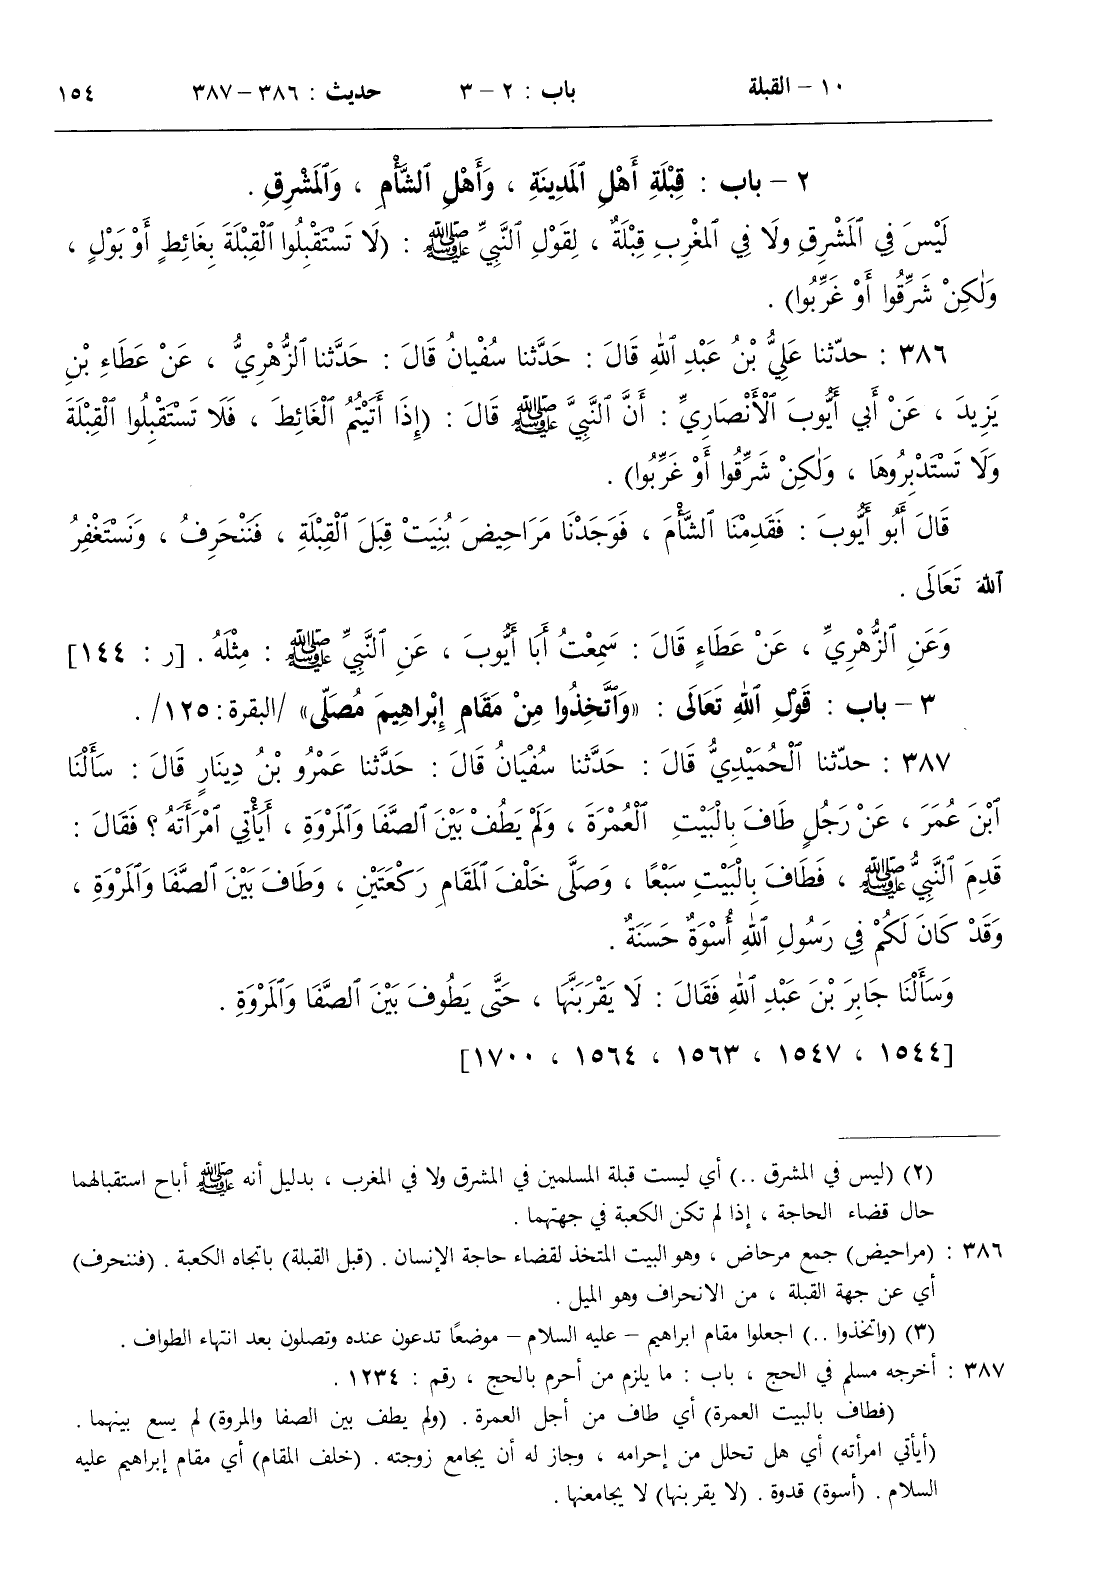 ١٠ – القبلة باب : ٢ – ٣ حديث : ٣٨٦ – ٣٨٧ ١٥٤
٢ – باب : قِبْلَةِ أَهْلِ ٱلْمَدِينَةِ ، وَأَهْلِ ٱلشَّأْمِ ، وَٱلْمَشْرِقِ .
لَيْسَ فِي ٱلْمَشْرِقِ ولَا فِي ٱلْمَغْرِبِ قِبْلَةٌ ، لِقَوْلِ ٱلنَّبِيِّ ﷺ : (لَا تَسْتَقْبِلُوا ٱلْقِبْلَةَ بِغَائِطٍ أَوْ بَوْلٍ ،
وَلٰكِنْ شَرِّقُوا أَوْ غَرِّبُوا) .
٣٨٦ : حدّثنا عَلِيُّ بْنُ عَبْدِ ٱللهِ قَالَ : حَدَّثَنا سُفْيَانُ قَالَ : حَدَّثَنا ٱلزُّهْرِيُّ ، عَنْ عَطَاءِ بْنِ
يَزِيدَ ، عَنْ أَبي أَيُّوبَ ٱلْأَنْصَارِيِّ : أَنَّ ٱلنَّبِيَّ ﷺ قَالَ : (إِذَا أَتَيْتُمُ ٱلْغَائِطَ ، فَلَا تَسْتَقْبِلُوا ٱلْقِبْلَةَ
وَلَا تَسْتَدْبِرُوهَا ، وَلٰكِنْ شَرِّقُوا أَوْ غَرِّبُوا) .
قَالَ أَبُو أَيُّوبَ : فَقَدِمْنَا ٱلشَّأْمَ ، فَوَجَدْنَا مَرَاحِيضَ بُنِيَتْ قِبَلَ ٱلْقِبْلَةِ ، فَنَنْحَرِفُ ، وَنَسْتَغْفِرُ
ٱللهَ تَعَالَى .
وَعَنِ ٱلزُّهْرِيِّ ، عَنْ عَطَاءٍ قَالَ : سَمِعْتُ أَبَا أَيُّوبَ ، عَنِ ٱلنَّبِيِّ ﷺ : مِثْلَهُ . [ر : ١٤٤]
٣ – باب : قَوْلِ ٱللهِ تَعَالَى : «وَٱتَّخِذُوا مِنْ مَقَامِ إِبْرَاهِيمَ مُصَلًّى» /البقرة : ١٢٥/ .
٣٨٧ : حدّثنا ٱلْحُمَيْدِيُّ قَالَ : حَدَّثَنا سُفْيَانُ قَالَ : حَدَّثَنا عَمْرُو بْنُ دِينَارٍ قَالَ : سَأَلْنَا
ٱبْنَ عُمَرَ ، عَنْ رَجُلٍ طَافَ بِالْبَيْتِ ٱلْعُمْرَةَ ، وَلَمْ يَطُفْ بَيْنَ ٱلصَّفَا وَٱلْمَرْوَةِ ، أَيَأْتِي ٱمْرَأَتَهُ ؟ فَقَالَ :
قَدِمَ ٱلنَّبِيُّ ﷺ ، فَطَافَ بِالْبَيْتِ سَبْعًا ، وَصَلَّى خَلْفَ ٱلْمَقَامِ رَكْعَتَيْنِ ، وَطَافَ بَيْنَ ٱلصَّفَا وَٱلْمَرْوَةِ ،
وَقَدْ كَانَ لَكُمْ فِي رَسُولِ ٱللهِ أُسْوَةٌ حَسَنَةٌ .
وَسَأَلْنَا جَابِرَ بْنَ عَبْدِ ٱللهِ فَقَالَ : لَا يَقْرَبَنَّهَا ، حَتَّى يَطُوفَ بَيْنَ ٱلصَّفَا وَٱلْمَرْوَةِ .
[١٥٤٤ ، ١٥٤٧ ، ١٥٦٣ ، ١٥٦٤ ، ١٧٠٠]
(٢) (ليس في المشرق ..) أي ليست قبلة المسلمين في المشرق ولا في المغرب ، بدليل أنه ﷺ أباح استقبالهما
حال قضاء الحاجة ، إذا لم تكن الكعبة في جهتهما .
٣٨٦ : (مراحيض) جمع مرحاض ، وهو البيت المتخذ لقضاء حاجة الإنسان . (قبل القبلة) باتجاه الكعبة . (فننحرف)
أي عن جهة القبلة ، من الانحراف وهو الميل .
(٣) (واتخذوا ..) اجعلوا مقام ابراهيم – عليه السلام – موضعًا تدعون عنده وتصلون بعد انتهاء الطواف .
٣٨٧ : أخرجه مسلم في الحج ، باب : ما يلزم من أحرم بالحج ، رقم : ١٢٣٤ .
(فطاف بالبيت العمرة) أي طاف من أجل العمرة . (ولم يطف بين الصفا والمروة) لم يسع بينهما .
(أيأتي امرأته) أي هل تحلل من إحرامه ، وجاز له أن يجامع زوجته . (خلف المقام) أي مقام إبراهيم عليه
السلام . (أسوة) قدوة . (لا يقربنها) لا يجامعنها .